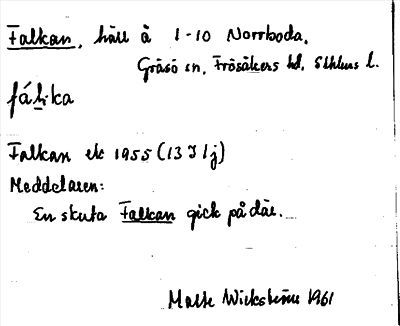 Falkan, häll å 1-10 Norrboda,
Gräsö sn, Frösåkers hd, Sthlms l.
fál·ka
Falkan ek 1955 (13 I 1j)
Meddelaren:
En skuta Falkan gick på där.
Malte Wickström 1961